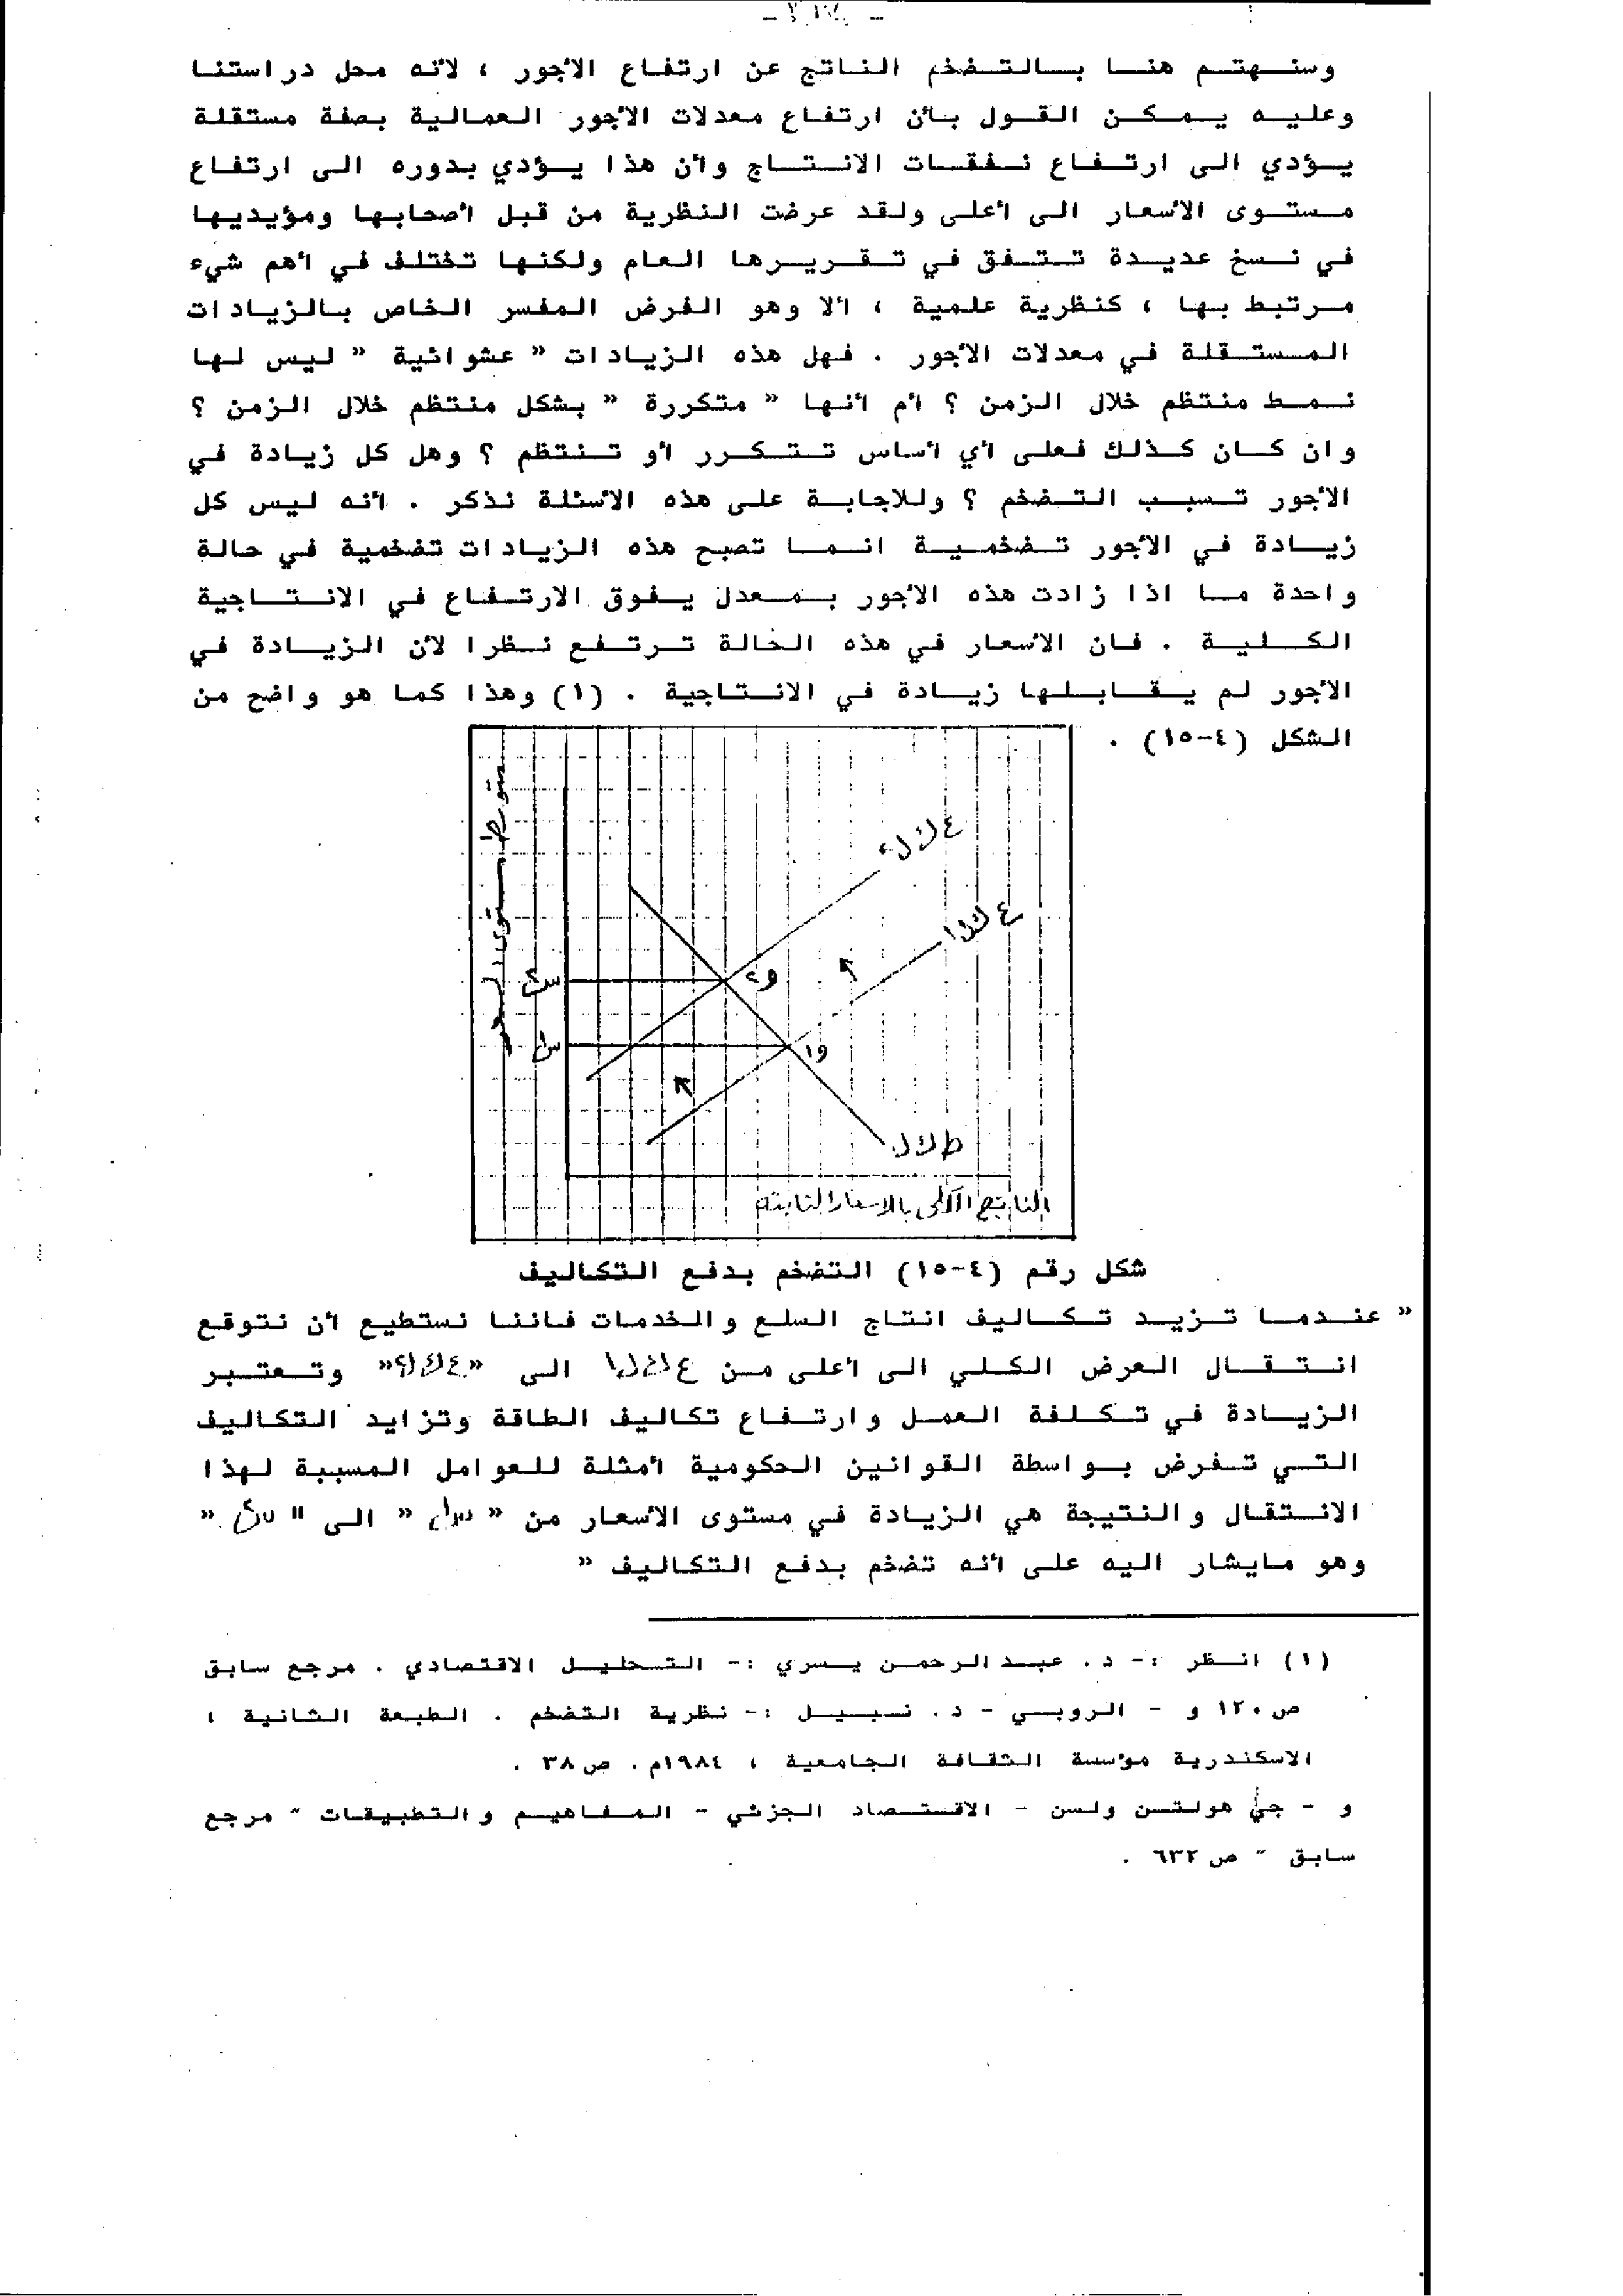 وسنهتم هنا بالتضخم الناتج عن ارتفاع الأجور ، لأنه محل دراستنا
وعليه يمكن القول بأن ارتفاع معدلات الأجور العمالية بصفة مستقلة
يؤدي الى ارتفاع نفقات الانتاج وأن هذا يؤدي بدوره الى ارتفاع
مستوى الأسعار الى أعلى ولقد عرضت النظرية من قبل أصحابها ومؤيديها
في نسخ عديدة تتفق في تقريرها العام ولكنها تختلف في أهم شيء
مرتبط بها ، كنظرية علمية ، ألا وهو الفرض المفسر الخاص بالزيادات
المستقلة في معدلات الأجور . فهل هذه الزيادات " عشوائية " ليس لها
نمط منتظم خلال الزمن ؟ أم أنها " متكررة " بشكل منتظم خلال الزمن ؟
وان كان كذلك فعلى أي أساس تتكرر أو تنتظم ؟ وهل كل زيادة في
الأجور تسبب التضخم ؟ وللاجابة على هذه الأسئلة نذكر . أنه ليس كل
زيادة في الأجور تضخمية انما تصبح هذه الزيادات تضخمية في حالة
واحدة ما اذا زادت هذه الأجور بمعدل يفوق الارتفاع في الانتاجية
الكلية . فان الأسعار في هذه الحالة ترتفع نظرا لأن الزيادة في
الأجور لم يقابلها زيادة في الانتاجية . (١) وهذا كما هو واضح من
الشكل (٤-١٥) .
ع ك ل٢
ع ك ل١
و٢
و١
ط ك ل
الناتج الكلي بالاسعار الثابتة
شكل رقم (٤-١٥) التضخم بدفع التكاليف
" عندما تزيد تكاليف انتاج السلع والخدمات فاننا نستطيع أن نتوقع
انتقال العرض الكلي الى أعلى من ع ك ل١ الى "ع ك ل٢" وتعتبر
الزيادة في تكلفة العمل وارتفاع تكاليف الطاقة وتزايد التكاليف
التي تفرض بواسطة القوانين الحكومية أمثلة للعوامل المسببة لهذا
الانتقال والنتيجة هي الزيادة في مستوى الأسعار من " " الى " "
وهو مايشار اليه على أنه تضخم بدفع التكاليف "
(١) انظر :- د. عبد الرحمن يسري :- التحليل الاقتصادي . مرجع سابق
ص ١٢٠ و - الروبي - د. نبيل :- نظرية التضخم . الطبعة الثانية ،
الاسكندرية مؤسسة الثقافة الجامعية ، ١٩٨٤م. ص ٣٨ .
و - جي هولتسن ولسن - الاقتصاد الجزئي - المفاهيم والتطبيقات " مرجع
سابق " ص ٦٣٢ .